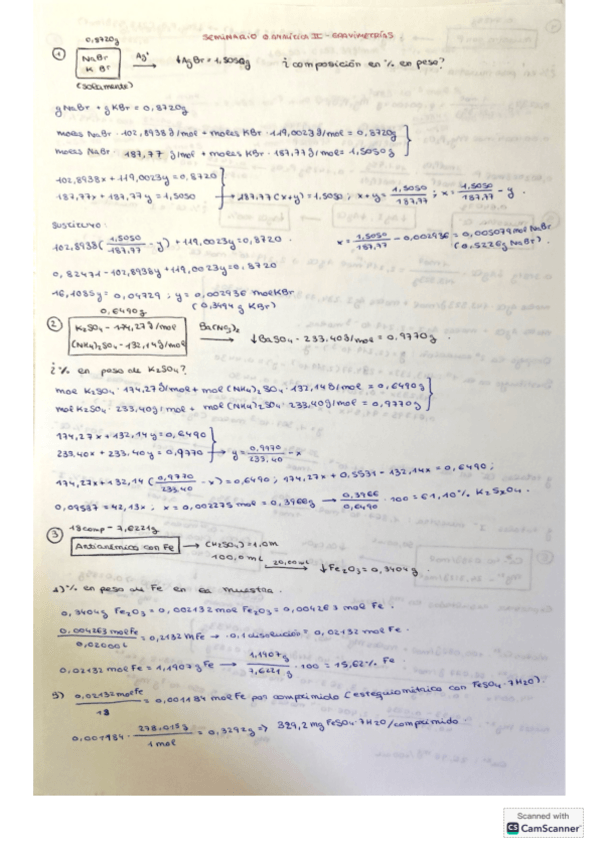 SEMINARIO QUÍMICA II - GRAVIMETRÍAS
0,8720g
① NaBr
KBr
Ag⁺ → ↓AgBr = 1,5050g ¿composición en % en peso?
(solamente)
g NaBr + g KBr = 0,8720g
moles NaBr · 102,8938 g/mol + moles KBr · 119,0023 g/mol = 0,8720g
moles NaBr · 187,77 g/mol + moles KBr · 187,77 g/mol = 1,5050g
102,8938x + 119,0023y = 0,8720
187,77x + 187,77y = 1,5050 → 187,77(x+y) = 1,5050; x+y = 1,5050/187,77; x = 1,5050/187,77 - y.
Sustituyo:
102,8938(1,5050/187,77 - y) + 119,0023y = 0,8720. x = 1,5050/187,77 - 0,002936 = 0,005079 mol NaBr
(0,5226g NaBr).
0,82471 - 102,8938y + 119,0023y = 0,8720
16,1085y = 0,04729; y = 0,002936 mol KBr
(0,3494 g KBr)
0,6490g
② K₂SO₄ - 174,27 g/mol
(NH₄)₂SO₄ - 132,14 g/mol
Ba(NO₃)₂ → ↓BaSO₄ - 233,40 g/mol = 0,9770g.
¿% en peso de K₂SO₄?
mol K₂SO₄ · 174,27 g/mol + mol (NH₄)₂SO₄ · 132,14 g/mol = 0,6490g
mol K₂SO₄ · 233,40 g/mol + mol (NH₄)₂SO₄ · 233,40 g/mol = 0,9770g
174,27x + 132,14y = 0,6490
233,40x + 233,40y = 0,9770 → y = 0,9770/233,40 - x
174,27x + 132,14(0,9770/233,40 - x) = 0,6490; 174,27x + 0,5531 - 132,14x = 0,6490;
0,09587 = 42,13x; x = 0,002275 mol = 0,3966g → 0,3966/0,6490 · 100 = 61,10%
③ 18 comp - 7,6221g
Antianémico con Fe → (H₂SO₄) = 1,0M
100,0 mL
20,00 mL → ↓Fe₂O₃ = 0,3404g.
1) % en peso de Fe en la muestra.
0,3404g Fe₂O₃ = 0,002132 mol Fe₂O₃ = 0,004263 mol Fe.
0,004263 mol Fe/0,02000 L = 0,2132 M Fe → 0,1 disolución = 0,02132 mol Fe.
0,02132 mol Fe = 1,1907g Fe → 1,1907g/7,6221g · 100 = 15,62% Fe
0,02132 mol Fe/18 = 0,001184 mol Fe por comprimido (estequiométrica con FeSO₄·7H₂O).
0,001184 · 278,015g/1 mol = 0,3292g ⇒ 329,2 mg FeSO₄·7H₂O/comprimido
Scanned with
CS CamScanner